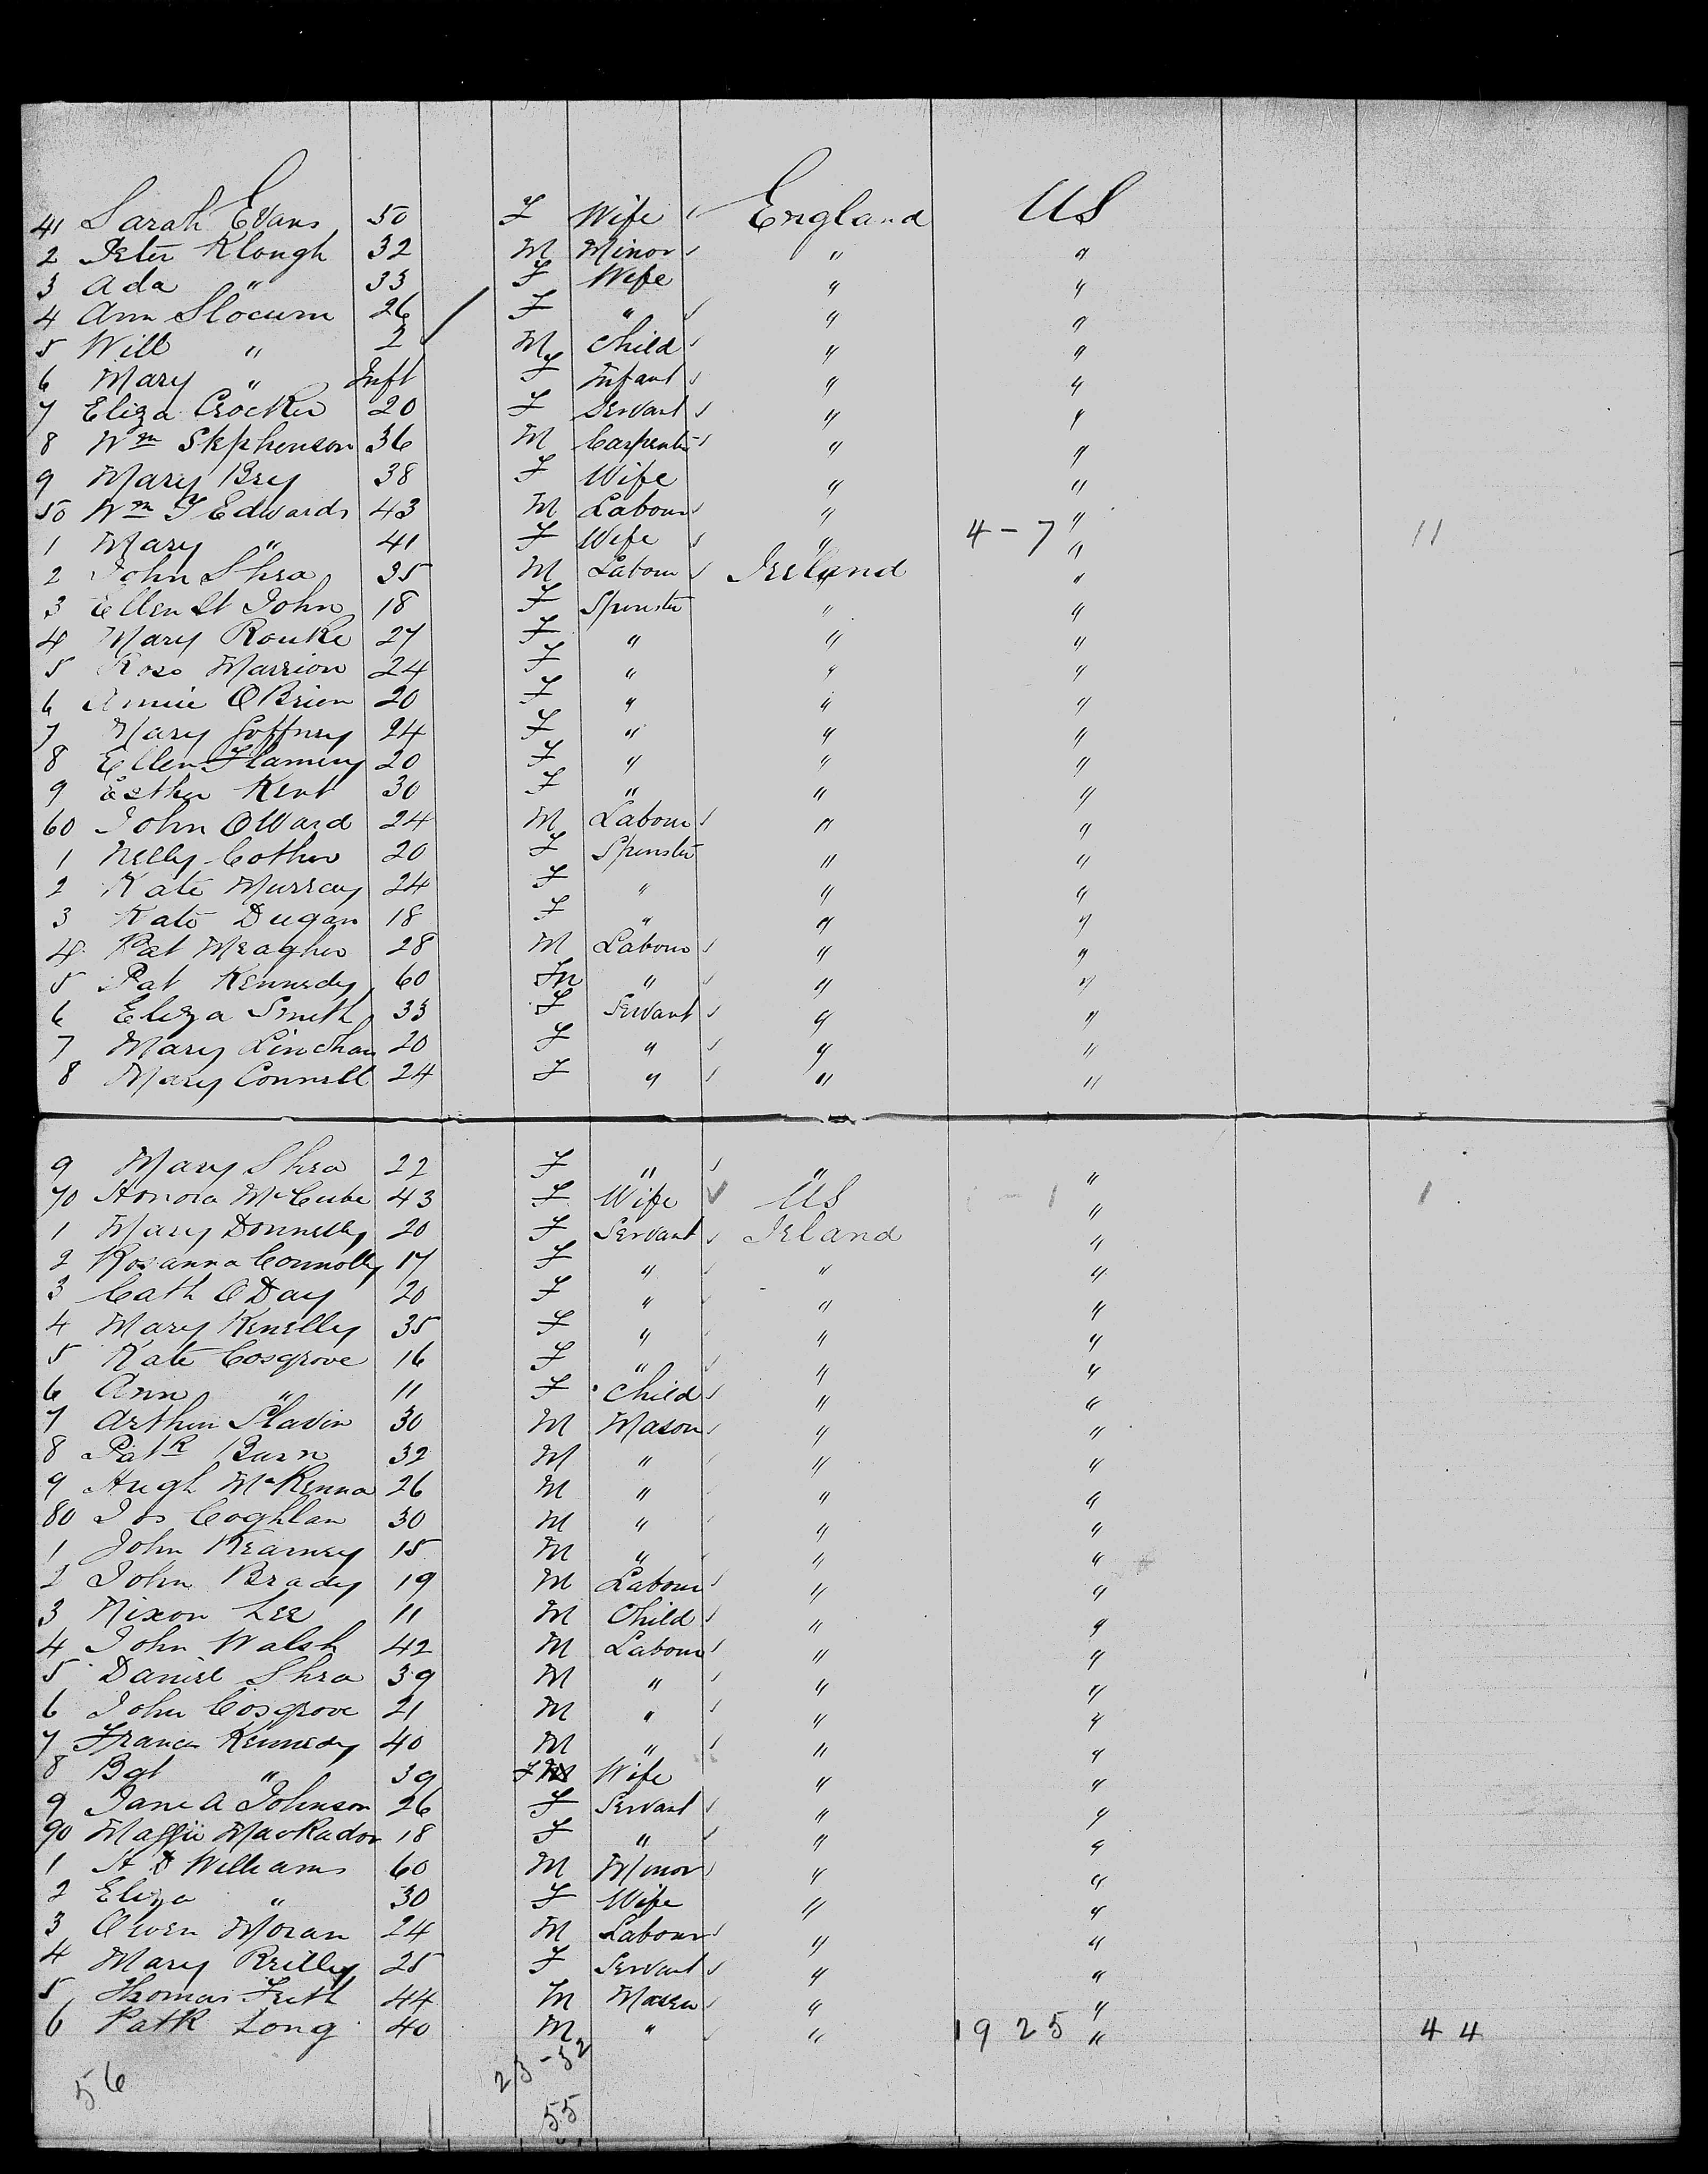 41 Sarah Evans 50 F Wife England US
2 Peter Klough 32 M Minor " "
3 Ada " 33 F Wife " "
4 Ann Slocum 26 F " " "
5 Will " 2 M Child " "
6 Mary " Inft F Infant " "
7 Eliza Crocker 20 F Servant " "
8 Wm Stephenson 36 M Carpenter " "
9 Mary Brey 38 F Wife " "
50 Wm Y Edwards 43 M Labour " "
1 Mary " 41 F Wife " 4-7 " 11
2 John Shea 35 M Labour Ireland "
3 Ellen St John 18 F Spinster " "
4 Mary Rouke 27 F " " "
5 Rose Marrion 24 F " " "
6 Annie O Brien 20 F " " "
7 Mary Goffney 24 F " " "
8 Ellen Flaming 20 F " " "
9 Esther Kent 30 F " " "
60 John O Ward 24 M Labour " "
1 Nelly Cother 20 F Spinster " "
2 Kate Murray 24 F " " "
3 Kate Dugan 18 F " " "
4 Pat Meagher 28 M Labour " "
5 Pat Kennedy 60 M " " "
6 Eliza Smith 33 F Servant " "
7 Mary Linehan 20 F " " "
8 Mary Connell 24 F " " "
9 Mary Shea 22 F " " "
70 Honora McCube 43 F Wife US 1 " 1
1 Mary Donnelly 20 F Servant Ireland "
2 Rosanna Connolly 17 F " " "
3 Cath O Day 20 F " " "
4 Mary Kenelly 35 F " " "
5 Kate Cosgrove 16 F " " "
6 Ann " 11 F Child " "
7 Arthur Slavin 30 M Mason " "
8 Patk Burn 32 M " " "
9 Hugh McKenna 26 M " " "
80 Jos Coghlan 30 M " " "
1 John Kearney 15 M " " "
2 John Brady 19 M Labour " "
3 Nixon Lee 11 M Child " "
4 John Walsh 42 M Labour " "
5 Daniel Shea 39 M " " "
6 John Cosgrove 21 M " " "
7 Francis Kennedy 40 M " " "
8 Bgt " 39 F Wife " "
9 Jane A Johnson 26 F Servant " "
90 Maggie 18 F " " "
1 H D Williams 60 M Minor " "
2 Eliza " 30 F Wife " "
3 Owen Moran 24 M Labour " "
4 Mary Reilly 25 F Servant " "
5 Thomas Frith 44 M Mason " "
6 Patk Long 40 M " " 19 25 " 44
56 23-32
55